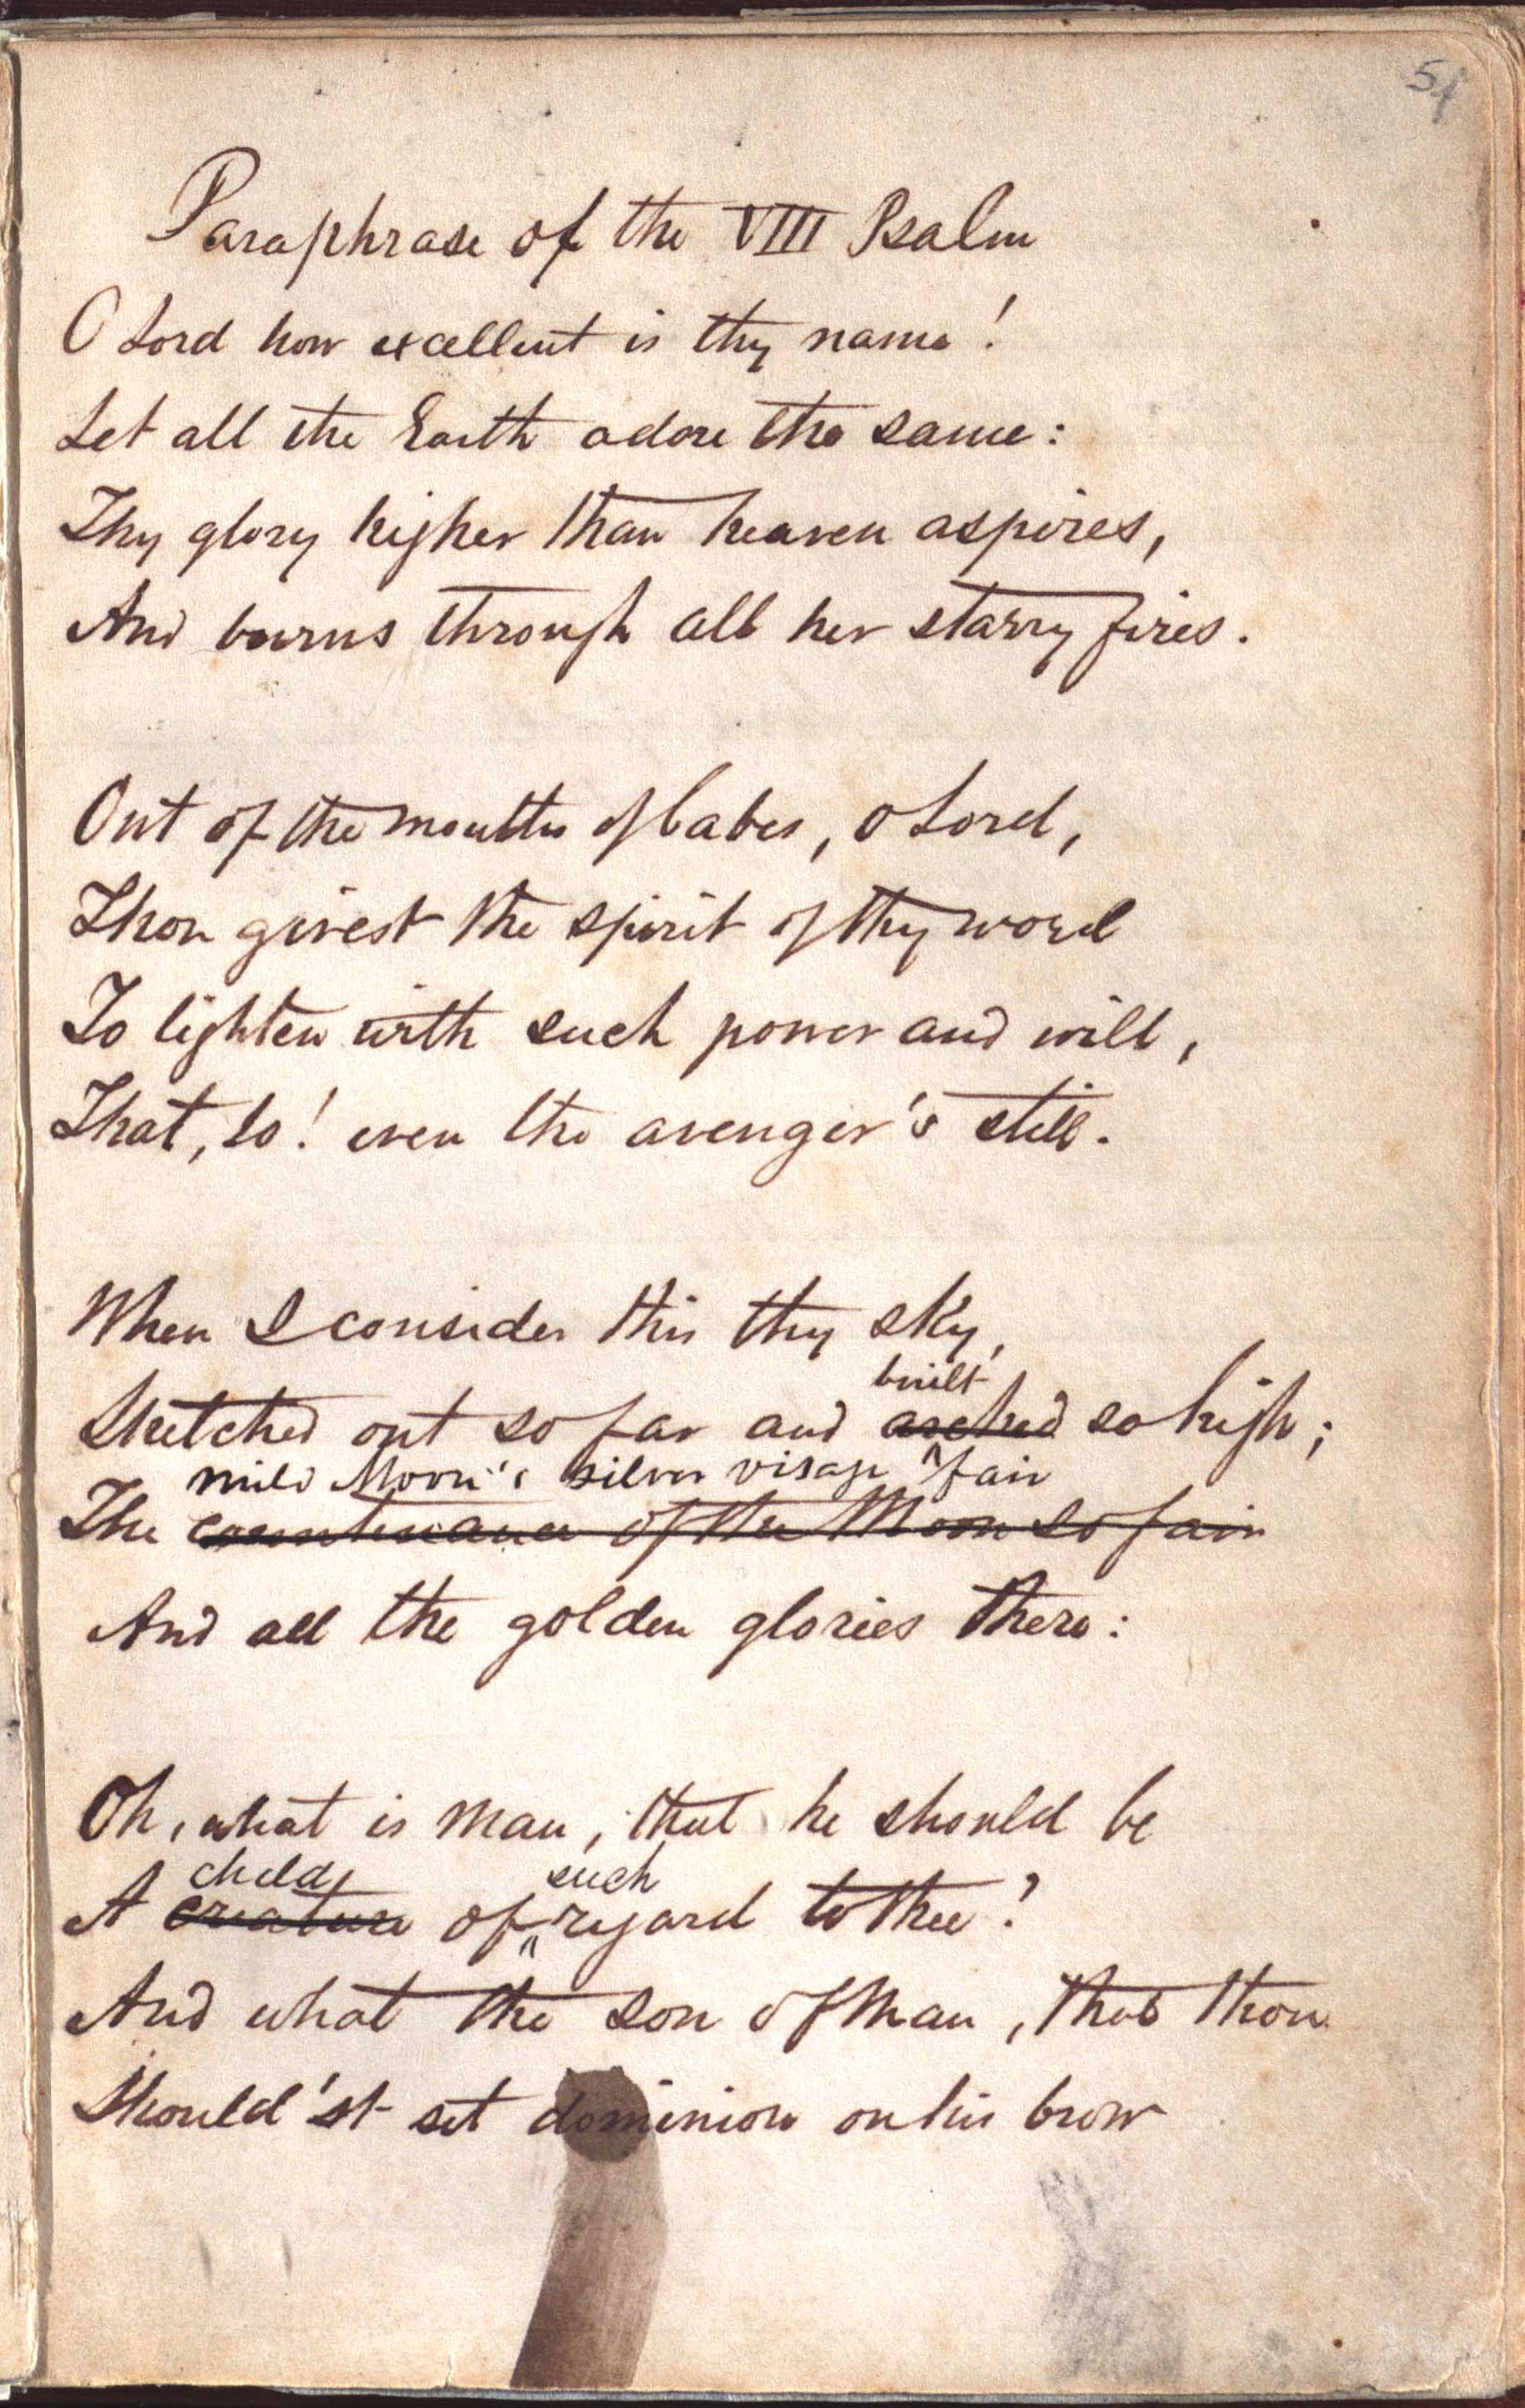 54
Paraphrase of the VIII Psalm
O Lord how excellent is thy name!
Let all the Earth adore the same:
Thy glory higher than heaven aspires,
And burns through all her starry fires.
Out of the mouths of babes, O Lord,
Thou givest the spirit of thy word
To lighten with such power and will,
That, lo! even the avenger's still.
When I consider this thy sky,
built
Stretched out so far and arched so high;
mild Moon's silver visage fair
The countenance of the Moon so fair
And all the golden glories there:
Oh, what is man, that he should be
child such
A creature of regard to thee?
And what the son of Man, that thou
Should'st set dominion on his brow